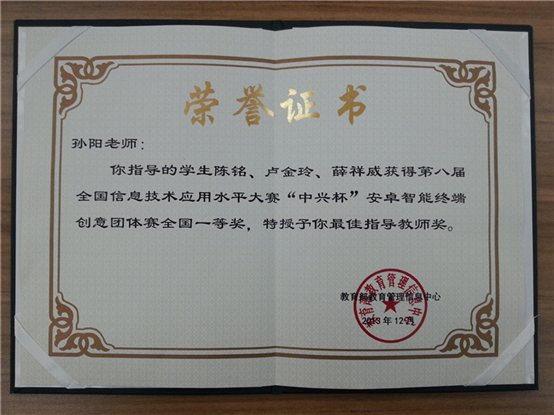 荣誉证书
孙阳老师：
你指导的学生陈铭、卢金玲、薛祥威获得第八届
全国信息技术应用水平大赛“中兴杯”安卓智能终端
创意团体赛全国一等奖，特授予你最佳指导教师奖。
教育部教育管理信息中心
2013年12月
教育部教育管理信息中心